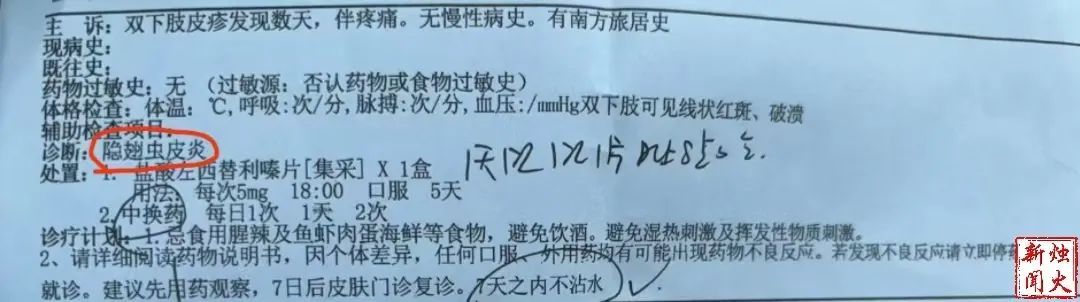 主　诉：双下肢皮疹发现数天，伴疼痛。无慢性病史。有南方旅居史
现病史：
既往史：
药物过敏史：无　（过敏源：否认药物或食物过敏史）
体格检查：体温：℃,呼吸:次/分,脉搏:次/分,血压:/mmHg双下肢可见线状红斑、破溃
辅助检查项目：
诊断：隐翅虫皮炎
处置：1. 盐酸左西替利嗪片[集采] X 1盒
1天1次 1次1片
用法：每次5mg　18:00　口服　5天
2. 中换药　每日1次　1天　2次
诊疗计划：1.忌食用腥辣及鱼虾肉蛋海鲜等食物，避免饮酒。避免湿热刺激及挥发性物质刺激。
2、请详细阅读药物说明书，因个体差异，任何口服、外用药均有可能出现药物不良反应。若发现不良反应请立即停药
就诊。建议先用药观察，7日后皮肤门诊复诊。7天之内不沾水
烛火新闻